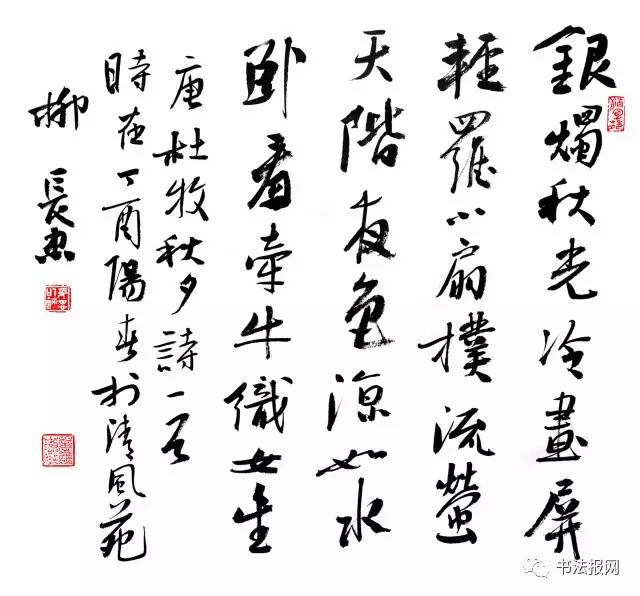 銀燭秋光冷畫屏
輕羅小扇撲流螢
天階夜色涼如水
卧看牽牛織女星
唐杜牧秋夕詩一首
時在丁酉陽春於清風苑
柳長忠
书法报网